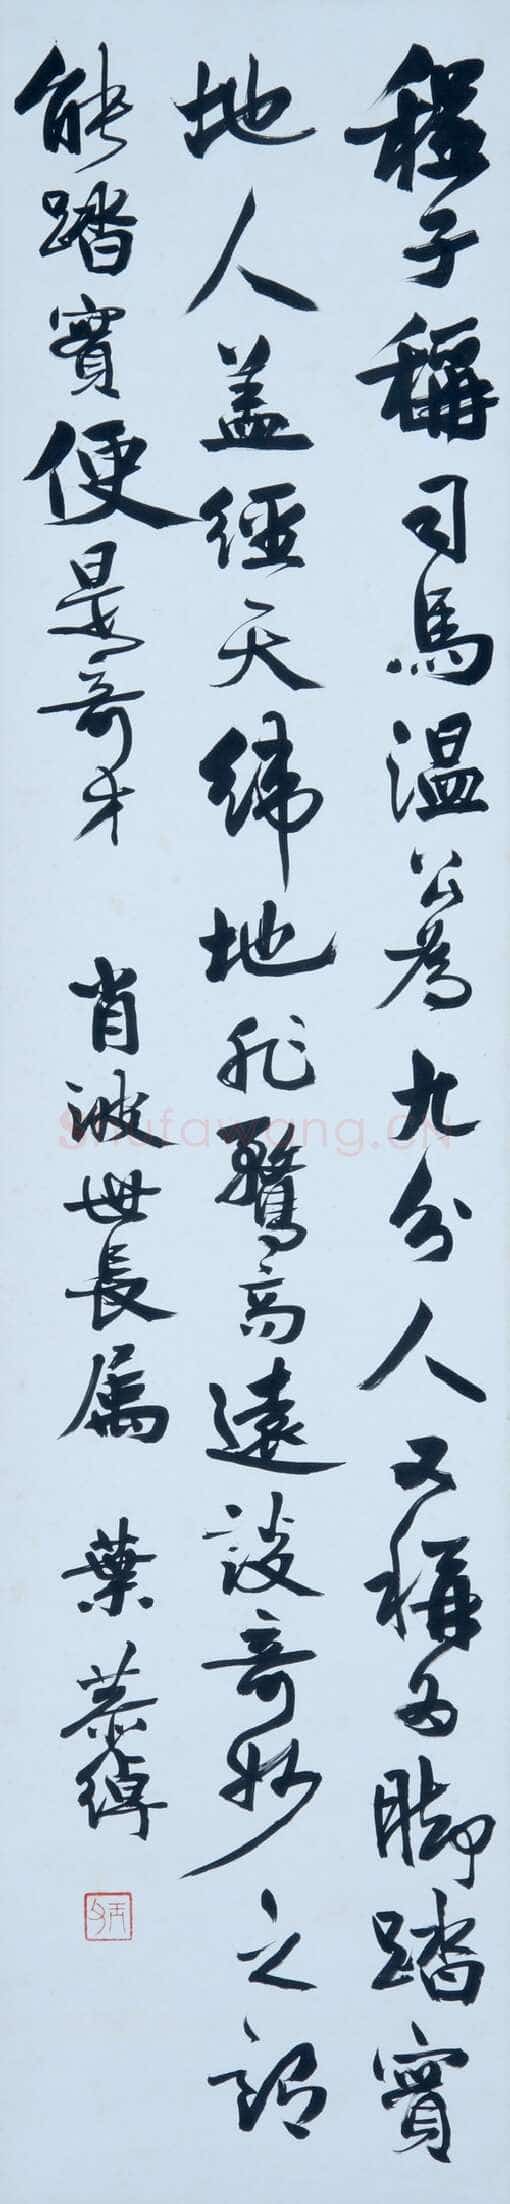 程子稱司馬温公為九分人又稱為脚踏實
地人盖經天緯地非騖高遠談奇妙之謂
能踏實便是奇才
肖波世長属
葉恭綽
shufawang.CN